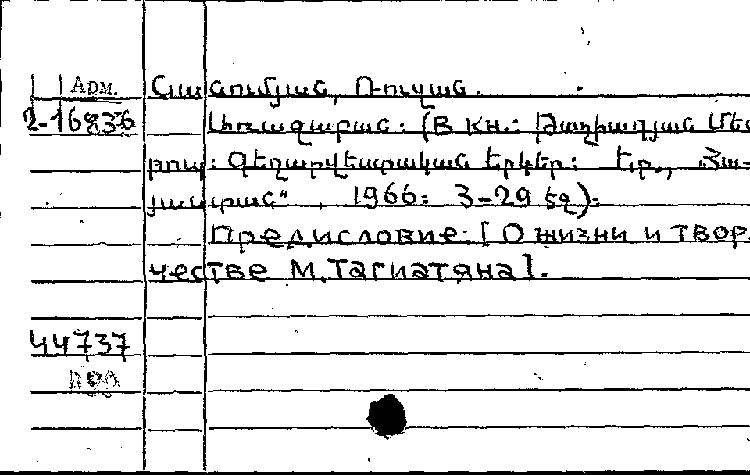 Adm. Նանումյան, Ռուզան.
2-16836 Առաջաբան: (В кн.: Թաղիադյան Մես
րոպ: Գեղարվեստական երկեր: Եր., „Հա-
յաստան“, 1966: 3-29 էջ):
Предисловие: [О жизни и твор
честве М. Тагиатяна].
44737